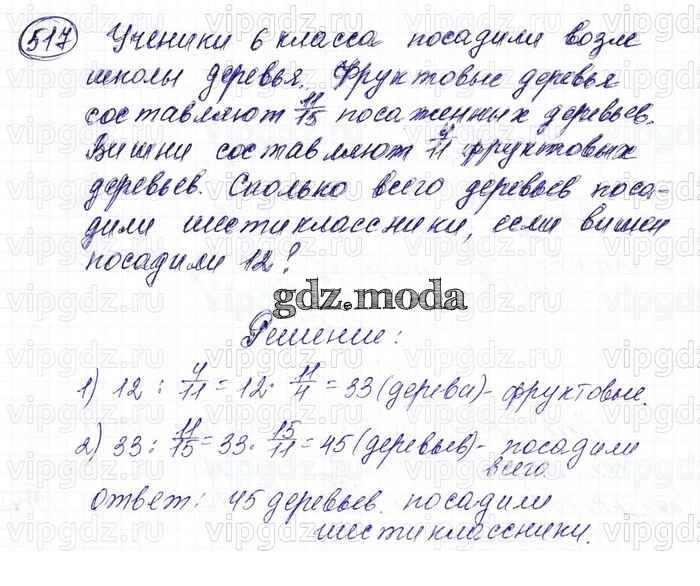 517 Ученики 6 класса посадили возле
школы деревья. Фруктовые деревья
составляют 11/15 посаженных деревьев.
Вишни составляют 4/11 фруктовых
деревьев. Сколько всего деревьев поса-
дили шестиклассники, если вишен
посадили 12?
gdz.moda
Решение:
1) 12 : 4/11 = 12 · 11/4 = 33 (дерева) - фруктовые.
2) 33 : 11/15 = 33 · 15/11 = 45 (деревьев) - посадили
всего.
ответ: 45 деревьев посадили
шестиклассники.
vipgdz.ru